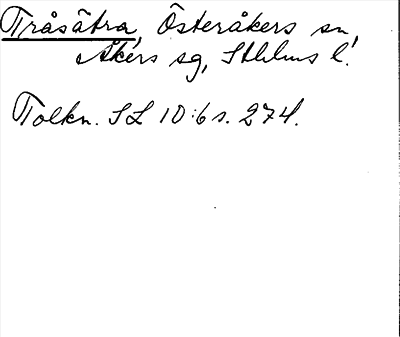 Tråsätra, Österåkers sn,
Åkers sg, Sthlms l.
Tolkn. SL 10:6 s. 274.